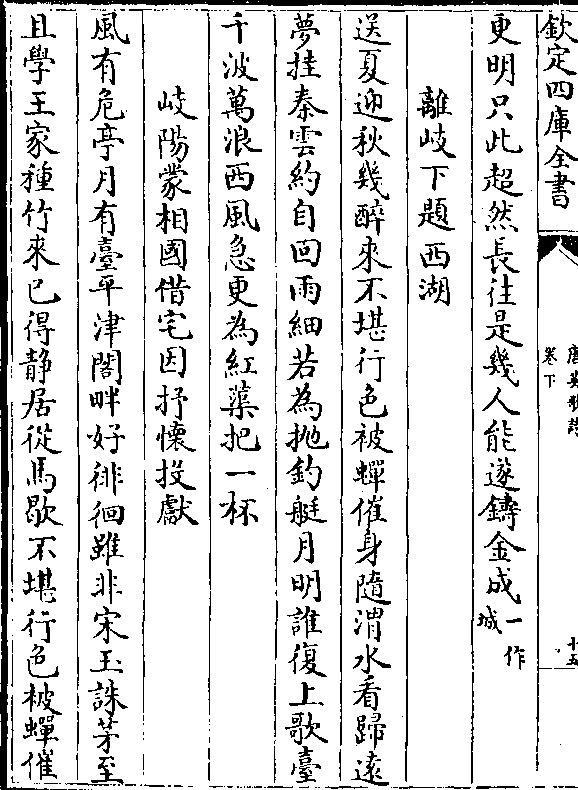 欽定四庫全書
卷下
十五
更明只此超然長往是幾人能遂鑄金成一作城
離岐下題西湖
送夏迎秋幾醉來不堪行色被蟬催身隨渭水看歸遠
夢挂秦雲約自回雨細若為抛釣艇月明誰復上歌臺
千波萬浪西風急更為紅蕖把一杯
岐陽蒙相國借宅因抒懷投獻
風有危亭月有臺平津閤畔好徘徊雖非宋玉誅茅至
且學王家種竹來已得静居從馬歇不堪行色被蟬催